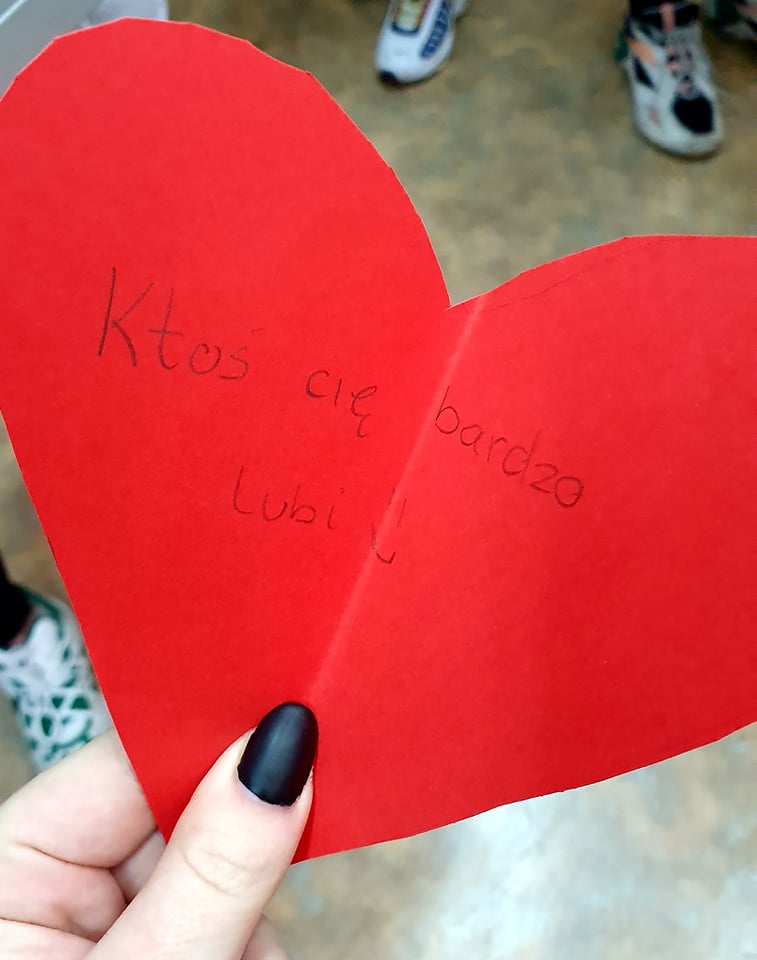 Ktoś cię bardzo
lubi ü